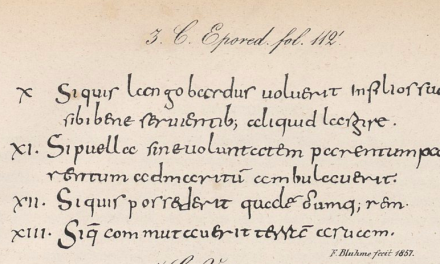 3. C. Epored. fol. 112'
X Siquis langobardus uoluerit Infilios suo
sibi bene seruientib; aliquid largire.
XI. Si puella sine uoluntatem parentum pa
rentum ad maritū ambulauerit.
XII. Si quis possederit quade
XIII. Siq̄ commutauerit terrā casu cum.
F. Bluhme fecit 1857.